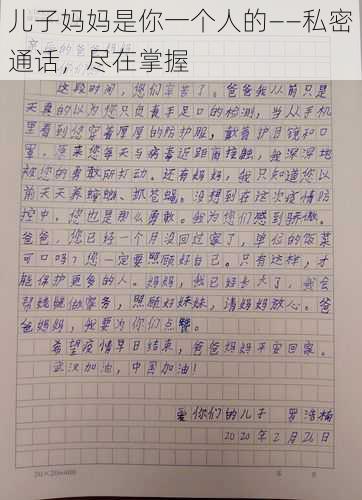 儿子妈妈是你一个人的——私密
通话，尽在掌握
亲爱的爸爸妈妈：
这段时间，您们辛苦了。爸爸我从前只是
天真的以为您只负责手足口的检测，当从手机
里看到您穿着厚厚的防护服，戴着护目镜和口
罩，原来您每天与病毒近距离接触，我深深地
被您的勇敢所打动。还有妈妈，我只知道您以
前天天养蟑螂、抓苍蝇。没想到在这次疫情防
控中，您也是那么勇敢。我为您们感到骄傲。
爸爸，您已经一个月没回过家了，单位的饭菜
可口吗？您一定要照顾好自己。只有这样，才
能保护更多的人。妈妈，我已经长大了，我会
帮姥姥做家务，照顾好妹妹，请妈妈放心。爸
爸妈妈，我要为你们点赞。
希望疫情早日结束，爸爸妈妈平安回家。
武汉加油，中国加油！
爱你们的儿子 罗浩楠
2020年2月26日